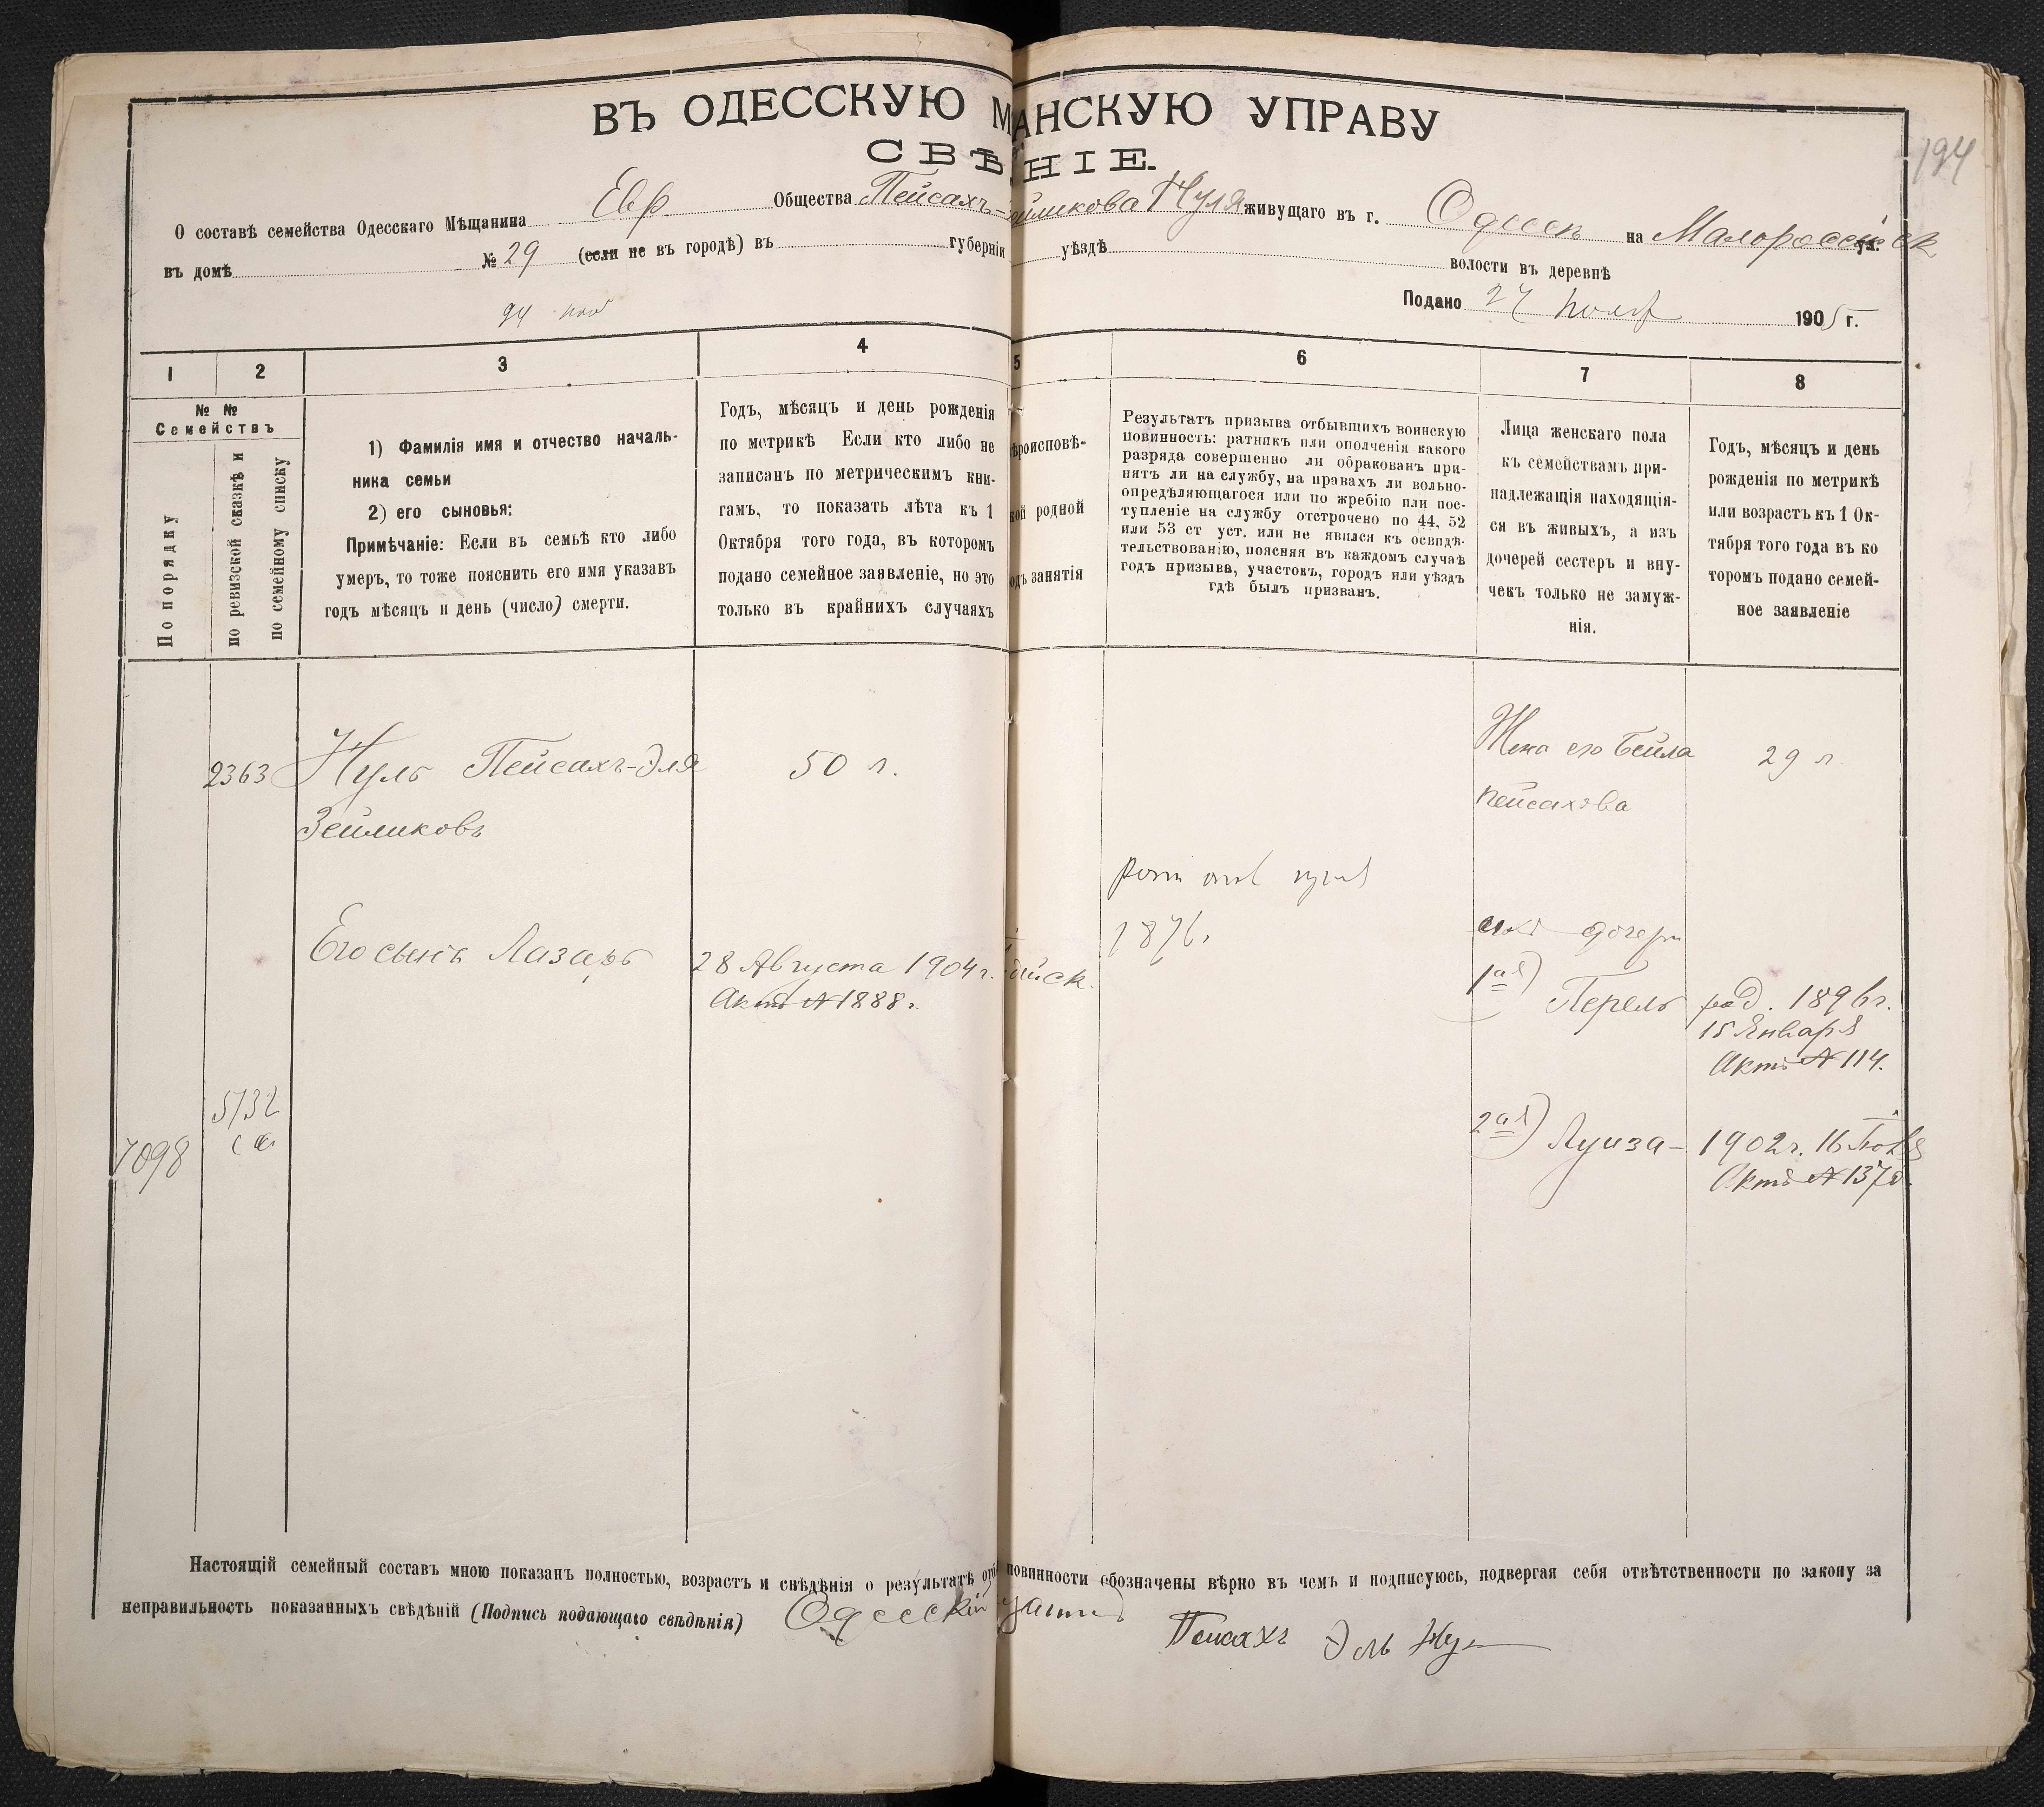 194
ВЪ ОДЕССКУЮ М АНСКУЮ УПРАВУ
СВѢ НІЕ.
О составѣ семейства Одесскаго Мѣщанина Евр Общества Пейсахъ- йликова Нуля живущаго въ г. Одессѣ на Малороссійск ул.
въ домѣ № 29 (если не въ городѣ) въ губерніи уѣздѣ волости въ деревнѣ
Подано 24 1905 г.
24
1 2 3 4 5 6 7 8
№ №
Семействъ
По порядку
по ревизской сказкѣ и
по семейному списку
1) Фамилія имя и отчество началь-
ника семьи
2) его сыновья:
Примѣчаніе: Если въ семьѣ кто либо
умеръ, то тоже пояснить его имя указавъ
годъ мѣсяцъ и день (число) смерти.
Годъ, мѣсяцъ и день рожденія
по метрикѣ Если кто либо не
записанъ по метрическимъ кни-
гамъ, то показать лѣта къ 1
Октября того года, въ которомъ
подано семейное заявленіе, но это
только въ крайнихъ случаяхъ
ѣроисповѣ-
кой родной
одъ занятія
Результатъ призыва отбывшихъ воинскую
повинность: ратникъ или ополченія какого
разряда совершенно ли обракованъ при-
нятъ ли на службу, на правахъ ли вольно-
опредѣляющагося или по жребію или пос-
тупленіе на службу отстрочено по 44, 52
или 53 ст уст. или не явился къ освидѣ-
тельствованію, поясняя въ каждомъ случаѣ
годъ призыва, участокъ, городъ или уѣздъ
гдѣ былъ призванъ.
Лица женскаго пола
къ семействамъ при-
надлежащія находящія-
ся въ живыхъ, а изъ
дочерей сестеръ и вну-
чекъ только не замуж-
нія.
Годъ, мѣсяцъ и день
рожденія по метрикѣ
или возрастъ къ 1 Ок-
тября того года въ ко
торомъ подано семей-
ное заявленіе
2363 Нуль Пейсахъ-Эля 50 л. Жена его Бейла 29 л
Зейликовъ Пейсахова
1876.
Его сынъ Лазарь 28 Августа 1904 г. ихъ дочери
Актъ № 1888 г.
1ая) Перель род. 1896 г.
15 Января
Актъ № 114.
5732
7098
2ая) Луиза - 1902 г. 16 Іюля
Актъ № 1370.
Настоящій семейный составъ мною показанъ полностью, возрастъ и свѣдѣнія о результатѣ отб повинности обозначены вѣрно въ чемъ и подписуюсь, подвергая себя отвѣтственности по закону за
неправильность показанныхъ свѣдѣній (Подпись подающаго свѣдѣнія) Одесскій
Пейсахъ Эль Нуль